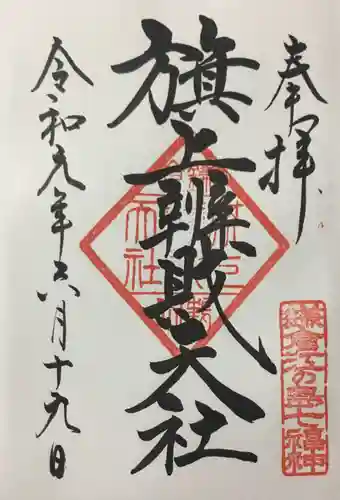 奉拝
旗上辨財天社
令和元年六月十九日
鎌倉江の島七福神